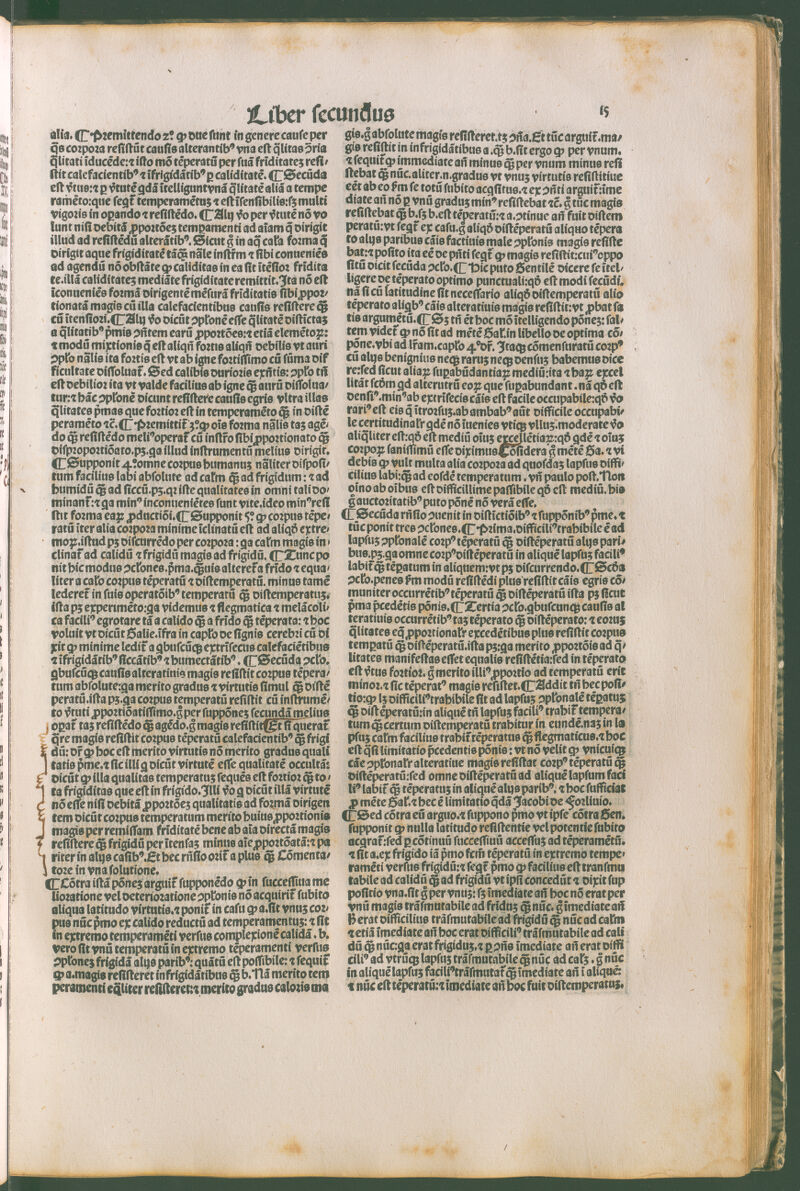 Liber secundus
15
alia. ¶ Premittendo 2⁹. ꝙ due sunt in genere cause per
q̄s corpora resistūt causis alterantibꝰ vna est q̄litas ɔ̄ria
q̄litati īducēde: ⁊ isto mō tēperatū per suā frīditateꝫ resi/
stit calefacientibꝰ ⁊ īfrigidātibꝰ ꝑ caliditatē. ¶ Secūda
est ꝟtus: ⁊ ꝑ ꝟtutē qdā ītelligunt vnā q̄litatē aliā a tempe
ramēto: que seqr̄ temperamētuꝫ ⁊ est īsensibilis: sꝫ multi
vigoris in opando ⁊ resistēdo. ¶ Alij ꝟo per ꝟtutē nō vo
lunt nisi debitā ꝓportōeꝫ tempamenti ad aīam q̄ dirigit
illud ad resistēdū alterātibꝰ. Sicut ḡ in aq̄ calā forma q̄
dirigit aque frigiditatē tāꝙ̄ nāle instrm̄ ⁊ sibi conueniēs
ad agendū nō obstāte ꝙ caliditas in ea sit ītēsior frīdita
te. illā caliditateꝫ mediāte frigiditate remittit. Ita nō est
īconueniēs formā dirigentē mēsurā frīditatis sibi ꝓpor/
tionatā magis cū illa calefacientibus causis resistere ꝙ̄
cū ītensiori. ¶ Alij ꝟo dicūt ɔplonē esse q̄litatē distīctaꝫ
a q̄litatibꝰ p̄mis ɔn̄tem earū ꝓportōes: ⁊ etiā elemētoꝝ:
⁊ modū mixtionis q̄ est aliqn̄ fortis aliqn̄ debilis vt auri
ɔplo nālis ita fortis est vt ab igne fortissimo cū sūma dif
ficultate dissoluat̄. Sed calibis durioris exn̄tis: ɔplo tn̄
est debilior ita vt valde facilius ab igne ꝙ̄ aurū dissolua/
tur: ⁊ hāc ɔplonē dicunt resistere causis egris vltra illas
q̄litates p̄mas que fortior est in temperamēto ꝙ̄ in distē
peramēto ⁊c̄. ¶ Premittit̄ 3⁹. ꝙ oīs forma nālis taꝫ agē/
do ꝙ̄ resistēdo meliꝰ operat̄ cū instrō sibi ꝓportionato ꝙ̄
disproportiōato. pꝫ. ga illud instrumentū melius dirigit.
¶ Supponit 4⁹. omne corpus humanuꝫ nāliter disposi/
tum facilius labi absolute ad calm̄ ꝙ̄ ad frigidum: ⁊ ad
humidū ꝙ̄ ad siccū. pꝫ. qr iste qualitates in omni tali do/
minant̄: ⁊ ga minꝰ inconueniētes sunt vite. ideo minꝰ resi
stit forma eaꝝ ꝓductiōi. ¶ Supponit 5⁹. ꝙ corpus tēpe/
ratū īter alia corpora minime īclinatū est ad aliqō extre/
moꝝ. istud pꝫ discurrēdo per corpora: ga calm̄ magis in/
clinat̄ ad calidū ⁊ frigidū magis ad frigidū. ¶ Tunc po
nit hic modus ɔclones. p̄ma. ꝙ̄uis alteret̄ a frīdo ⁊ equa/
liter a calo corpus tēperatū ⁊ distemperatū. minus tamē
lederet̄ in suis operatōibꝰ temperatū ꝙ̄ distemperatuꝫ.
ista pꝫ experimēto: ga videmus ⁊ flegmatica ⁊ melācoli/
ca faciliꝰ egrotare tā a calido ꝙ̄ a frīdo ꝙ̄ tēperata: ⁊ hoc
voluit vt dicūt Galie. īfra in caplo de signis cerebri cū di
xit ꝙ minime ledit̄ a gbuscūq̨ extrīsecus calefaciētibus
⁊ īfrigidātibꝰ siccātibꝰ ⁊ humectātibꝰ. ¶ Secūda ɔclo.
gbuscūq̨ causis alteratiuis magis resistit corpus tēpera/
tum absolute: ga merito gradus ⁊ virtutis simul ꝙ̄ distē
peratū. ista pꝫ. ga corpus temperatū resistit cū instrumē/
to ꝟtuti ꝓportiōatissimo. ḡ per suppōneꝫ secundā melius
opat̄ taꝫ resistēdo ꝙ̄ agēdo. ḡ magis resistit. Et si querat̄
q̄re magis resistit corpus tēperatū calefacientibꝰ ꝙ̄ frigi
dū: dr̄ ꝙ hoc est merito virtutis nō merito gradus quali
tatis p̄me. ⁊ sic illi q̄ dicūt virtutē esse qualitatē occultā:
dicūt ꝙ illa qualitas temperatuꝫ sequēs est fortior ꝙ̄ to/
ta frigiditas que est in frigido. Illi ꝟo q̄ dicūt illā virtutē
nō esse nisi debitā ꝓportōeꝫ qualitatis ad formā dirigen
tem dicūt corpus temperatum merito huius ꝓportionis
magis per remissam frīditatē bene ab aīa directā magis
resistere ꝙ̄ frigidū per ītensaꝫ minus aīe ꝓportōatā: ⁊ pa
riter in alijs casibꝰ. Et hec rn̄sio orit̄ a plus ꝙ̄ Cōmenta/
tore in vna solutione.
¶ Cōtra istā pōneꝫ arguit̄ supponēdo ꝙ in successiua me
lioratione vel deterioratione ɔplonis nō acquirit̄ subito
aliqua latitudo virtutis. ⁊ ponit̄ in casu ꝙ a. sit vnuꝫ cor/
pus nūc p̄mo ex calido reductū ad temperamentuꝫ: ⁊ sit
in extremo temperamēti versus complexionē calidā. b.
vero sit vnū temperatū in extremo tēperamenti versus
ɔploneꝫ frigidā alijs paribꝰ: quātū est possibile: ⁊ sequit̄
ꝙ a. magis resisteret infrigidātibus ꝙ̄ b. Nā merito tem
peramenti eq̄liter resisteret: ⁊ merito gradus caloris ma
gis. ḡ absolute magis resisteret. tꝫ ɔn̄a. Et tūc arguit̄. ma/
gis resistit in infrigidātibus a. ꝙ̄ b. sit ergo ꝙ per vnum.
⁊ sequit̄ ꝙ immediate an̄ minus ꝙ̄ per vnum minus resi
stebat ꝙ̄ nūc. aliter. n. gradus vt vnuꝫ virtutis resistitiue
eēt ab eo p̄m se totū subito acqsitus. ⁊ ex ɔn̄ti arguit̄: ime
diate an̄ nō ꝑ vnū graduꝫ minꝰ resistebat ⁊c̄. ḡ tūc magis
resistebat ꝙ̄ b. sꝫ b. est tēperatū: ⁊ a. ɔtinue an̄ fuit distem
peratū: vt seqr̄ ex casu. ḡ aliqō distēperatū aliquo tēpera
to alijs paribus cāis factiuis male ɔplonis magis resiste
bat: ⁊ posito ita eē de pn̄ti seqr̄ ꝙ magis resistit: cuiꝰ oppo
sitū dicit secūda ɔclo. ¶ Hic puto Gentilē dicere se ītel/
ligere de tēperato optimo punctuali: qō est modi secūdi.
nā si cū latitudine sit necessario aliqō distemperatū alio
tēperato aligbꝰ cāis alteratiuis magis resistit: vt ꝓbat sa
tis argumētū. ¶ Sꝫ tn̄ et hoc mō ītelligendo pōneꝫ: sal/
tem videt̄ ꝙ nō sit ad mētē Gal. in libello de optima cō/
pōne. vbi ad lr̄am. caplo 4⁹. dr̄. Itaq̨ cōmensuratū corpꝰ
cū alijs benignius neq̨ raruꝫ neq̨ densuꝫ habemus dice
re: sed sicut aliaꝝ supabūdantiaꝝ mediū: ita ⁊ haꝝ excel
litāt scōm gd alterutrū eoꝝ que supabundant. nā qō est
densiꝰ. minꝰ ab extrīsecis cāis est facile occupabile: qō ꝟo
rariꝰ est eis q̄ ītrorsuꝫ. ab ambabꝰ aūt difficile occupabi/
le certitudinalr̄ gdē nō īuenies vtiq̨ vlluꝫ. moderate ꝟo
aliq̄liter est: qō est mediū oīuꝫ excellētiaꝝ: qō gdē ⁊ oīuꝫ
corpoꝝ sanissimū esse diximus. Considera ḡ mētē Ga. ⁊ vi
debis ꝙ vult multa alia corpora ad quosdaꝫ lapsus diffi/
cilius labi: ꝙ̄ ad eosdē temperatum. vn̄ paulo post. Non
oīno ab oībus est difficillime passibile qō est mediū. his
ḡ auctoritatibꝰ puto pōnē nō verā esse.
¶ Secūda rn̄sio ɔuenit in distīctiōibꝰ ⁊ suppōnibꝰ p̄me. ⁊
tūc ponit tres ɔclones. ¶ Prima. difficiliꝰ trahibile ē ad
lapsuꝫ ɔplonalē corpꝰ tēperatū ꝙ̄ distēperatū alijs pari/
bus. pꝫ. ga omne corpꝰ distēperatū in aliquē lapsuꝫ faciliꝰ
labit̄ ꝙ̄ tēpatum in aliquem: vt pꝫ discurrendo. ¶ Scōa
ɔclo. penes p̄m modū resistēdi plus resistit cāis egris cō/
muniter occurrētibꝰ tēperatū ꝙ̄ distēperatū ista pꝫ sicut
p̄ma p̄cedētis pōnis. ¶ Tertia ɔclo. gbuscunq̨ causis al
teratiuis occurrētibꝰ taꝫ tēperato ꝙ̄ distēperato: ⁊ eoruꝫ
q̄litates eq̄ ꝓportionalr̄ excedētibus plus resistit corpus
tempatū ꝙ̄ distēperatū. ista pꝫ: ga merito ꝓportōis ad q̄/
litates manifestas esset equalis resistētia: sed in tēperato
est ꝟtus fortior. ḡ merito illiꝰ ꝓportio ad temperatū erit
minor. ⁊ sic tēperatꝰ magis resistet. ¶ Addit tn̄ hec posi/
tio: ꝙ lꝫ difficiliꝰ trahibile sit ad lapsuꝫ ɔplonalē tēpatuꝫ
ꝙ̄ distēperatū: in aliquē tn̄ lapsuꝫ faciliꝰ trahit̄ tempera/
tum ꝙ̄ certum distemperatū trahitur in eundē. naꝫ in la
psuꝫ calm̄ facilius trahit̄ tēperatus ꝙ̄ flegmaticus. ⁊ hoc
est q̄si limitatio p̄cedentis pōnis: vt nō velit ꝙ vnicuiq̨
cāe ɔplonalr̄ alteratiue magis resistat corpꝰ tēperatū ꝙ̄
distēperatū: sed omne distēperatū ad aliquē lapsum faci
liꝰ labit̄ ꝙ̄ tēperatuꝫ in aliquē alijs paribꝰ. ⁊ hoc sufficiat
ꝓ mēte Gal. ⁊ hec ē limitatio qdā Jacobi de Forliuio.
¶ Sed cōtra eū arguo. ⁊ suppono p̄mo vt ipse cōtra Gen.
supponit ꝙ nulla latitudo resistentie vel potentie subito
acqrat̄: sed ꝑ cōtinuū successiuū accessuꝫ ad tēperamētū.
⁊ sit a. ex frigido iā p̄mo fcm̄ tēperatū in extremo tempe/
ramēti versus frigidū: ⁊ seqr̄ p̄mo ꝙ facilius est transmu
tabile ad calidū ꝙ̄ ad frigidū vt ipsi concedūt ⁊ dixit sup
positio vna. sit ḡ per vnuꝫ: sꝫ īmediate an̄ hoc nō erat per
vnū magis trāsmutabile ad frīduꝫ ꝙ̄ nūc. ḡ īmediate an̄
ꝑ erat difficilius trāsmutabile ad frigidū ꝙ̄ nūc ad calm̄
⁊ etiā īmediate an̄ hoc erat difficiliꝰ trāsmutabile ad cali
dū ꝙ̄ nūc: ga erat frigiduꝫ. ⁊ ꝑ ɔn̄s īmediate an̄ erat diffi
ciliꝰ ad vtrūq̨ lapsuꝫ trāsmutabile ꝙ̄ nūc ad calꝫ. ḡ nūc
in aliquē lapsuꝫ faciliꝰ trāsmutat̄ ꝙ̄ īmediate an̄ ī aliquē:
⁊ nūc est tēperatū: ⁊ īmediate an̄ hoc fuit distemperatuꝫ.